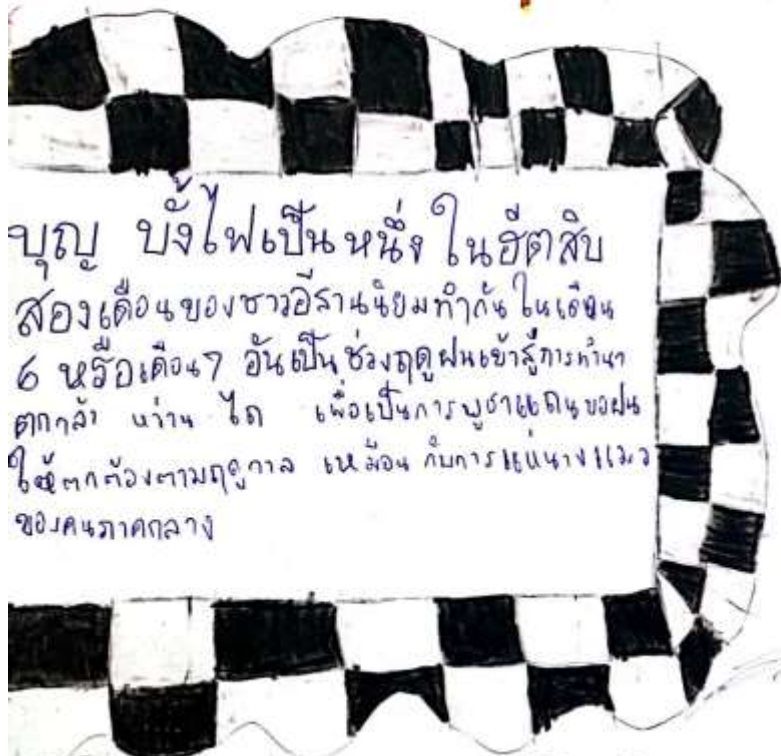 บุญ บั้งไฟเป็นหนึ่งในฮีตสิบ
สองเดือนของชาวอีสานนิยมทำกันในเดือน
6 หรือเดือน7 อันเป็นช่วงฤดูฝนเข้าสู่การทำนา
ตกกล้า หว่าน ไถ เพื่อเป็นการบูชาแถนขอฝน
ให้ตกต้องตามฤดูกาล เหมือนกับการแห่นางแมว
ของคนภาคกลาง